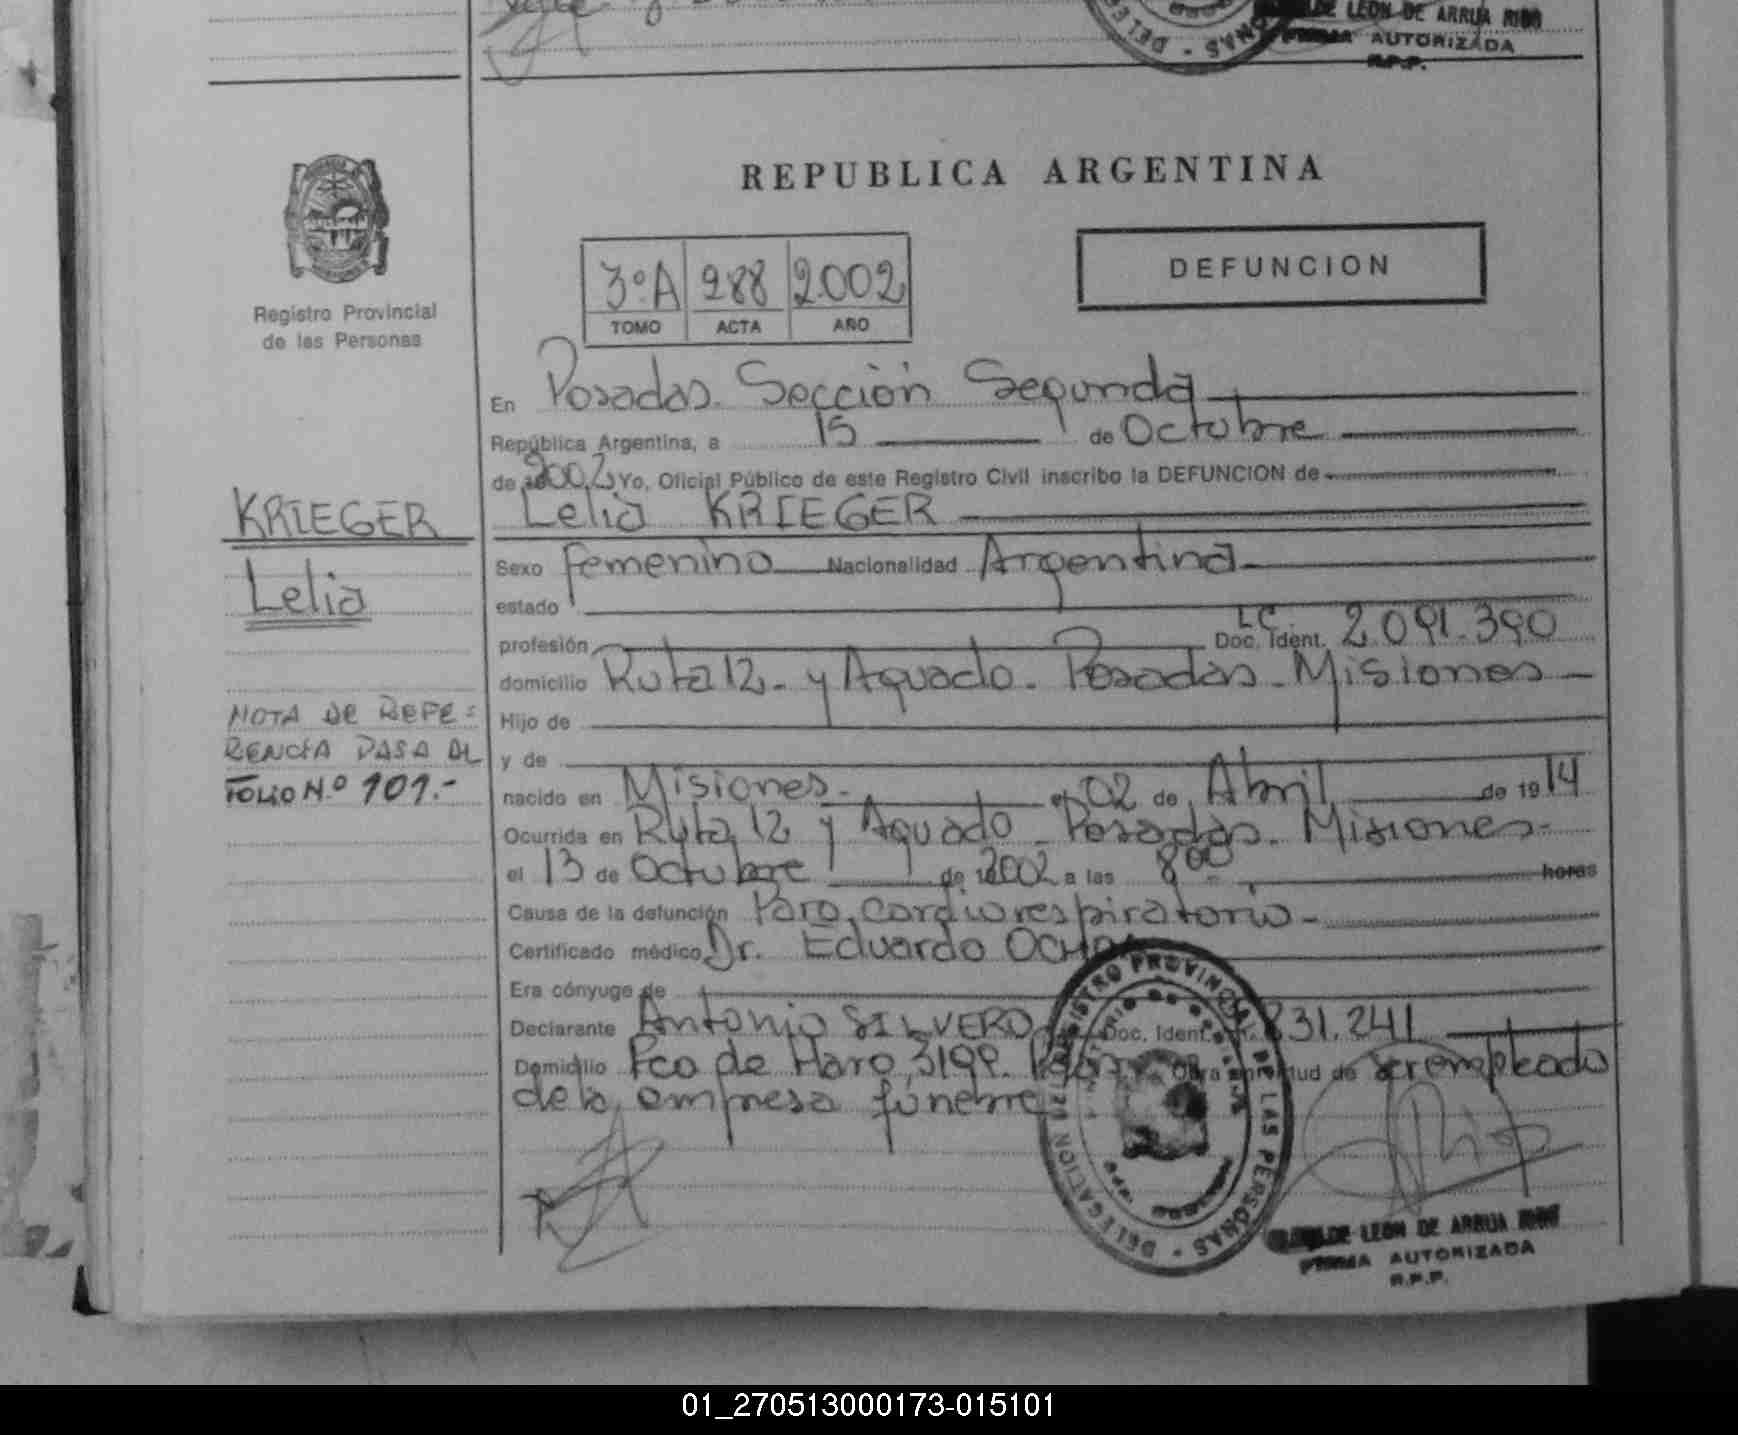 LEON DE ARRUA
FIRMA AUTORIZADA
R.P.P.
DELE
NAS
REPUBLICA ARGENTINA
DEFUNCION
3ºA 288 2002
TOMO ACTA AÑO
Registro Provincial
de las Personas
En Posadas. Sección Segunda
República Argentina, a 15 de Octubre
de 2002 Yo, Oficial Público de este Registro Civil inscribo la DEFUNCION de
Lelia KRIEGER
KRIEGER
Lelia
Sexo femenino Nacionalidad Argentina
estado
profesión L.C. Doc. Ident. 2.091.390
domicilio Ruta 12 - y Aguado - Posadas - Misiones
NOTA DE REFE=
RENCIA PASA AL
FOLIO Nº 101.-
Hijo de
y de
nacido en Misiones - el 02 de Abril de 1914
Ocurrida en Ruta 12 y Aguado - Posadas - Misiones -
el 13 de Octubre de 2002 a las 8 00 horas
Causa de la defunción Paro cardiorespiratorio -
Certificado médico Dr. Eduardo OCHOA
Era cónyuge de
Declarante Antonio SILVERO Doc. Ident. 831.241
Domicilio Pco de Haro 3199. Obra en virtud de ser empleado
de la empresa fúnebre
REGISTRO PROVINCIAL DE LAS PERSONAS - DELEGACION
LEON DE ARRUA
FIRMA AUTORIZADA
R.P.P.
01_270513000173-015101